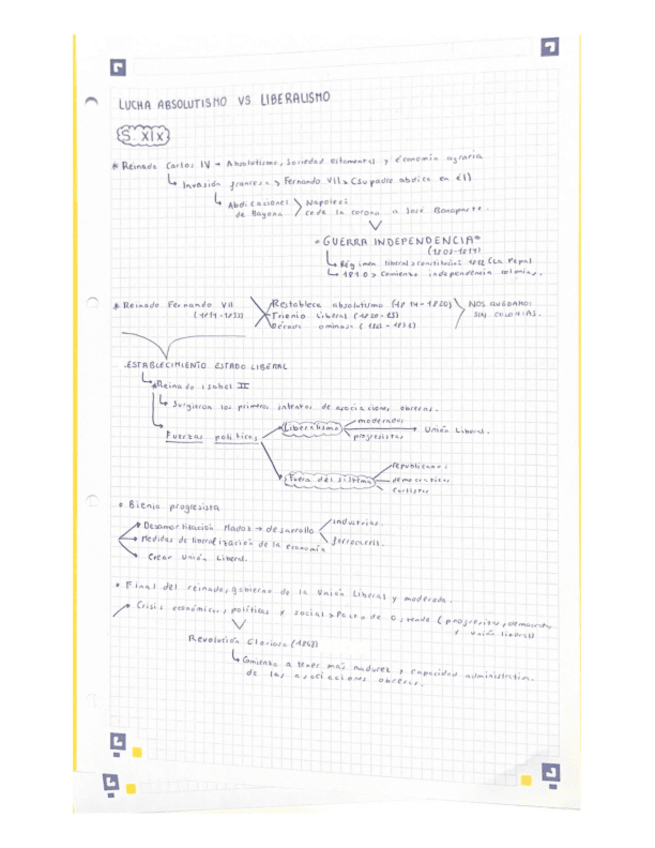 LUCHA ABSOLUTISMO VS LIBERALISMO
S. XIX
* Reinado Carlos IV → Absolutismo, sociedad estamental y economía agraria
Invasión francesa > Fernando VII > (su padre abdica en él)
Abdicaciones > Napoleón
de Bayona cede la corona a José Bonaparte.
• GUERRA INDEPENDENCIA*
(1808-1814)
Régimen liberal > constitución 1812 (La Pepa)
1810 > Comienzo independencia colonias.
* Reinado Fernando VII
(1814-1833)
Restablece absolutismo (1814-1820)
Trienio liberal (1820-23)
Década ominosa (1823-1833)
NOS QUEDAMOS
SIN COLONIAS.
.ESTABLECIMIENTO ESTADO LIBERAL
*Reinado Isabel II
Surgieron los primeros intentos de asociaciones obreras.
Fuerzas políticas
Liberalismo
moderados
progresistas
→ Unión Liberal.
Fuera del sistema
republicanos
democratas
Carlistas
• Bienio progresista
Desamortización Madoz → desarrollo
industrias.
ferrocarril.
Medidas de liberalización de la economía
Crear Unión Liberal.
• Final del reinado, gobierno de la Unión Liberal y moderada.
Crisis económicas, políticas y social > Pacto de Ostende (progresistas, demócratas
y unión liberal)
Revolución Gloriosa (1868)
Comienzo a tener más madurez y capacidad administrativa.
de las asociaciones obreras.